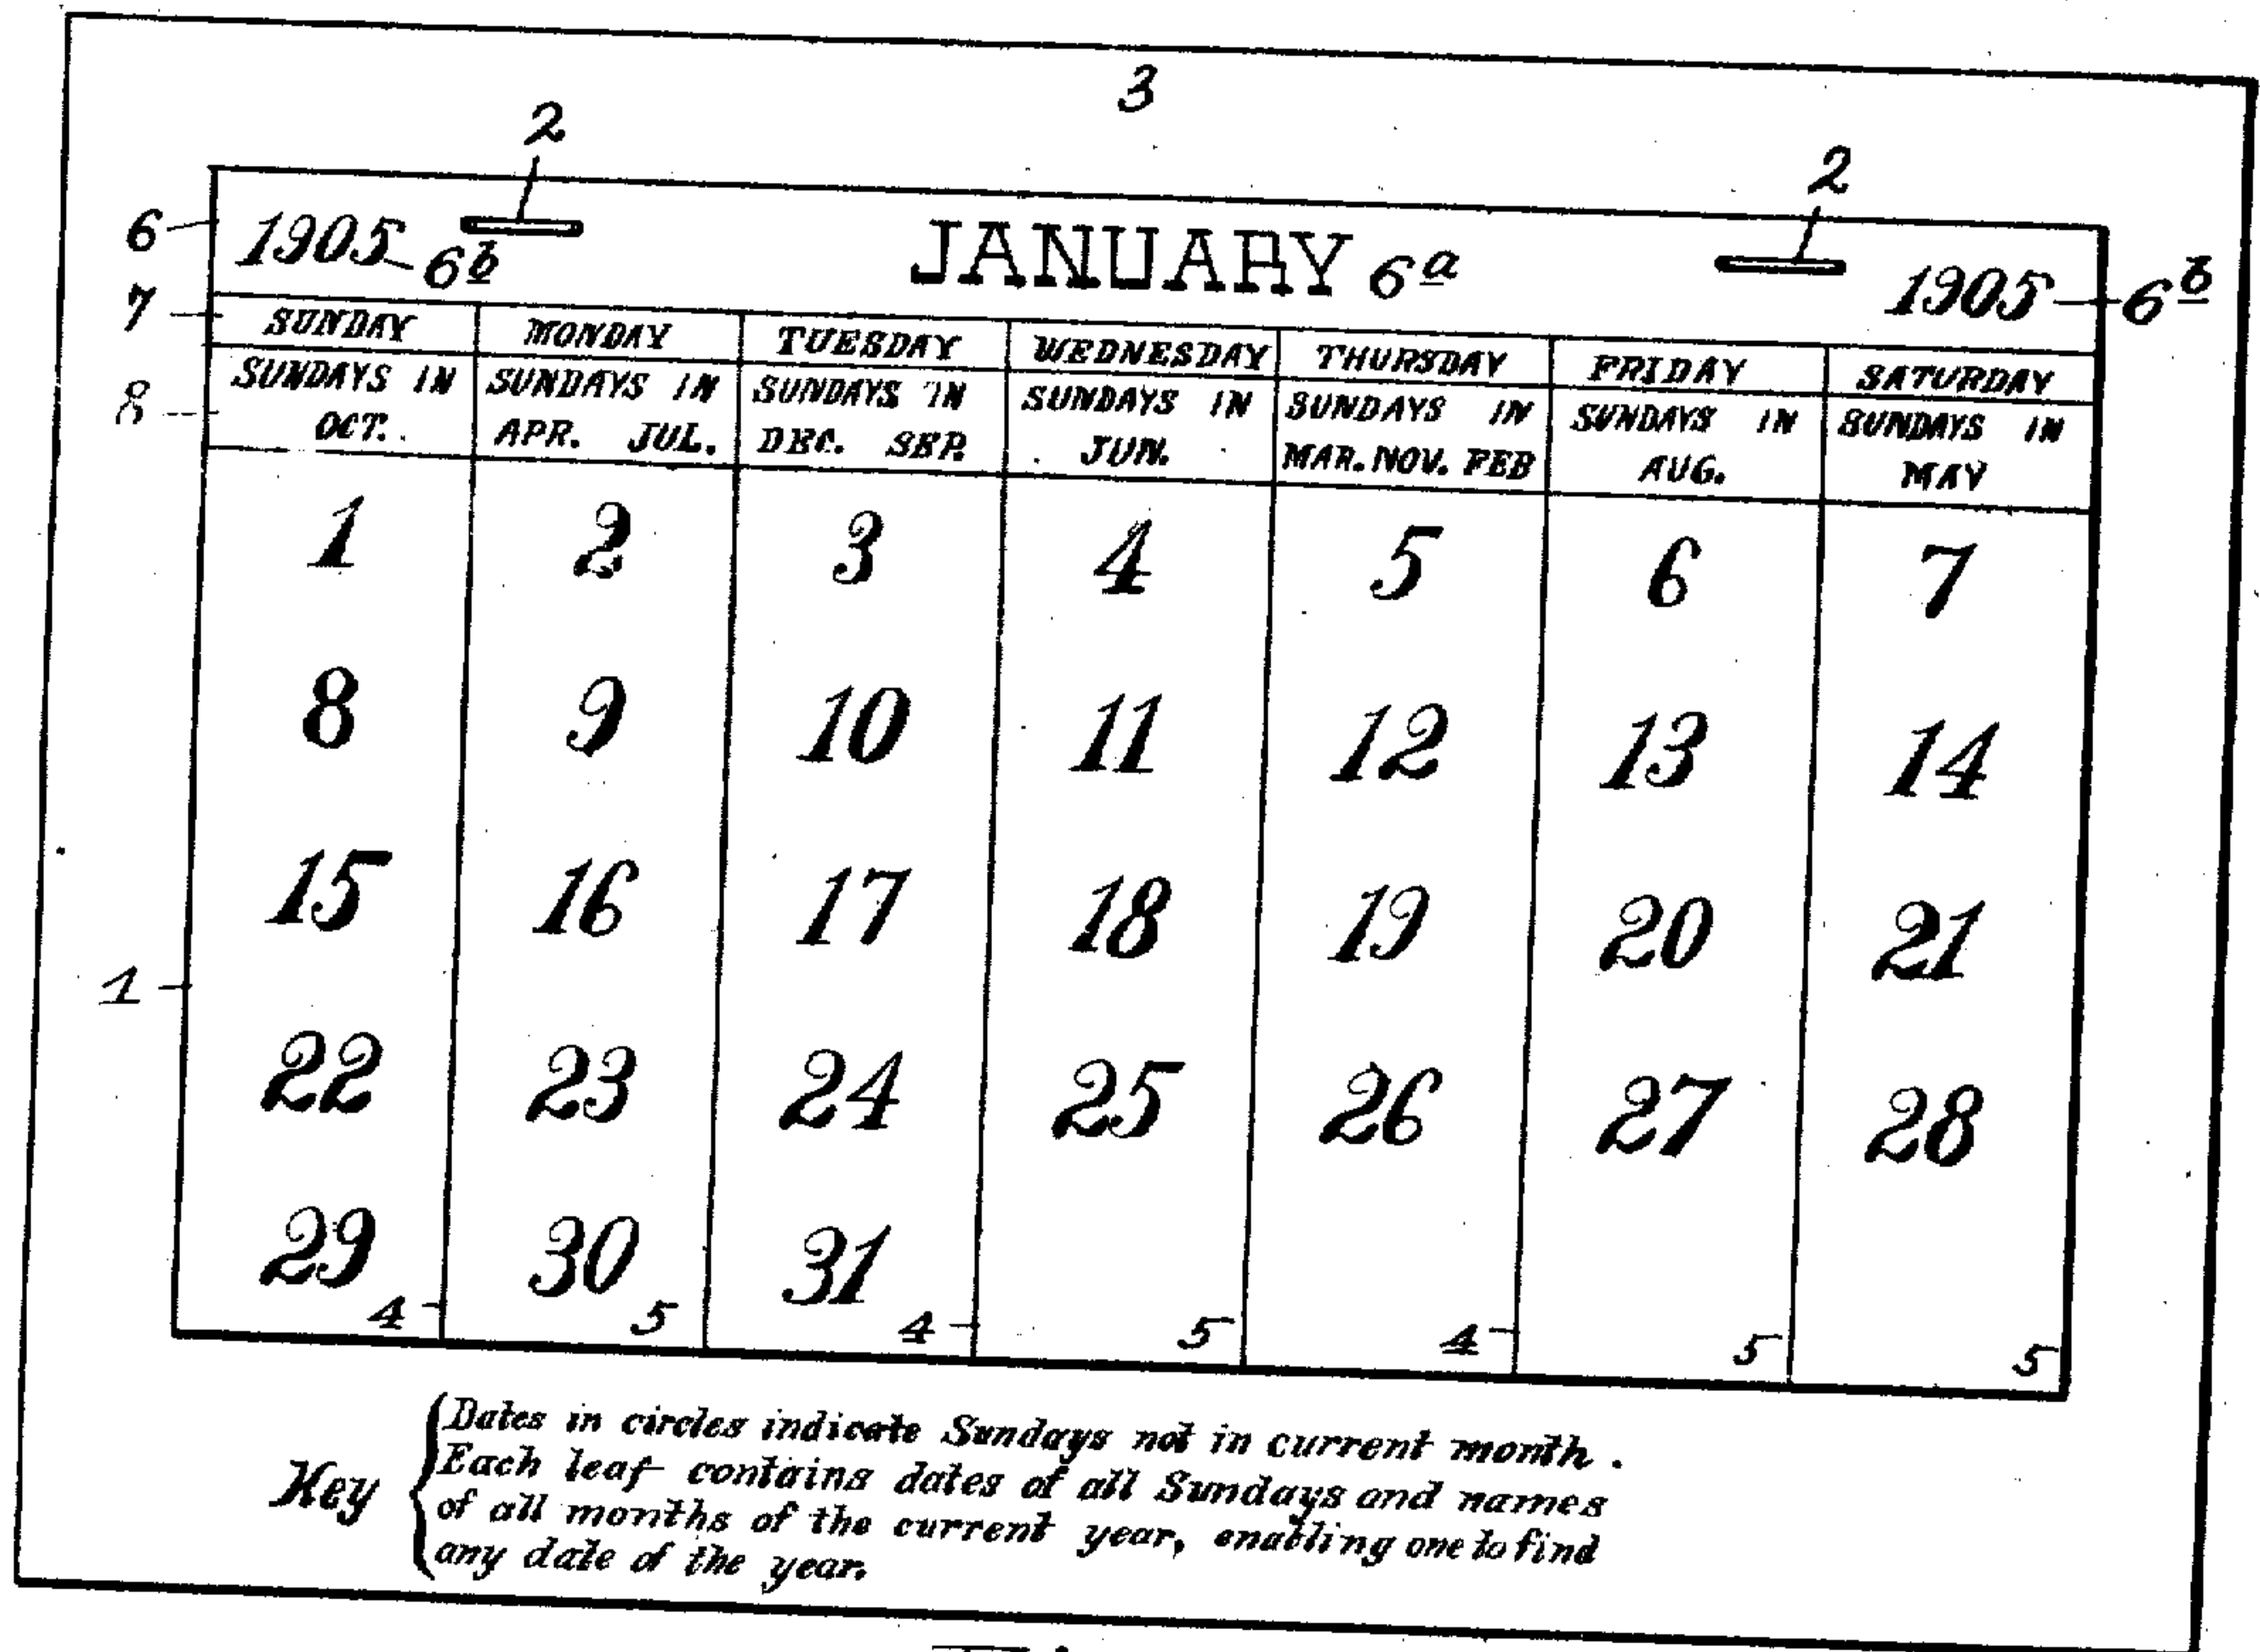 3
2 2
6 1905 6b JANUARY 6a 1905 6b
7 SUNDAY MONDAY TUESDAY WEDNESDAY THURSDAY FRIDAY SATURDAY
8 SUNDAYS IN SUNDAYS IN SUNDAYS IN SUNDAYS IN SUNDAYS IN SUNDAYS IN SUNDAYS IN
OCT. APR. JUL. DEC. SEP. JUN. MAR. NOV. FEB AUG. MAY
1 2 3 4 5 6 7
8 9 10 11 12 13 14
15 16 17 18 19 20 21
1
22 23 24 25 26 27 28
29 30 31
4 5 4 5 4 5 5
Key
Dates in circles indicate Sundays not in current month.
Each leaf contains dates of all Sundays and names
of all months of the current year, enabling one to find
any date of the year.